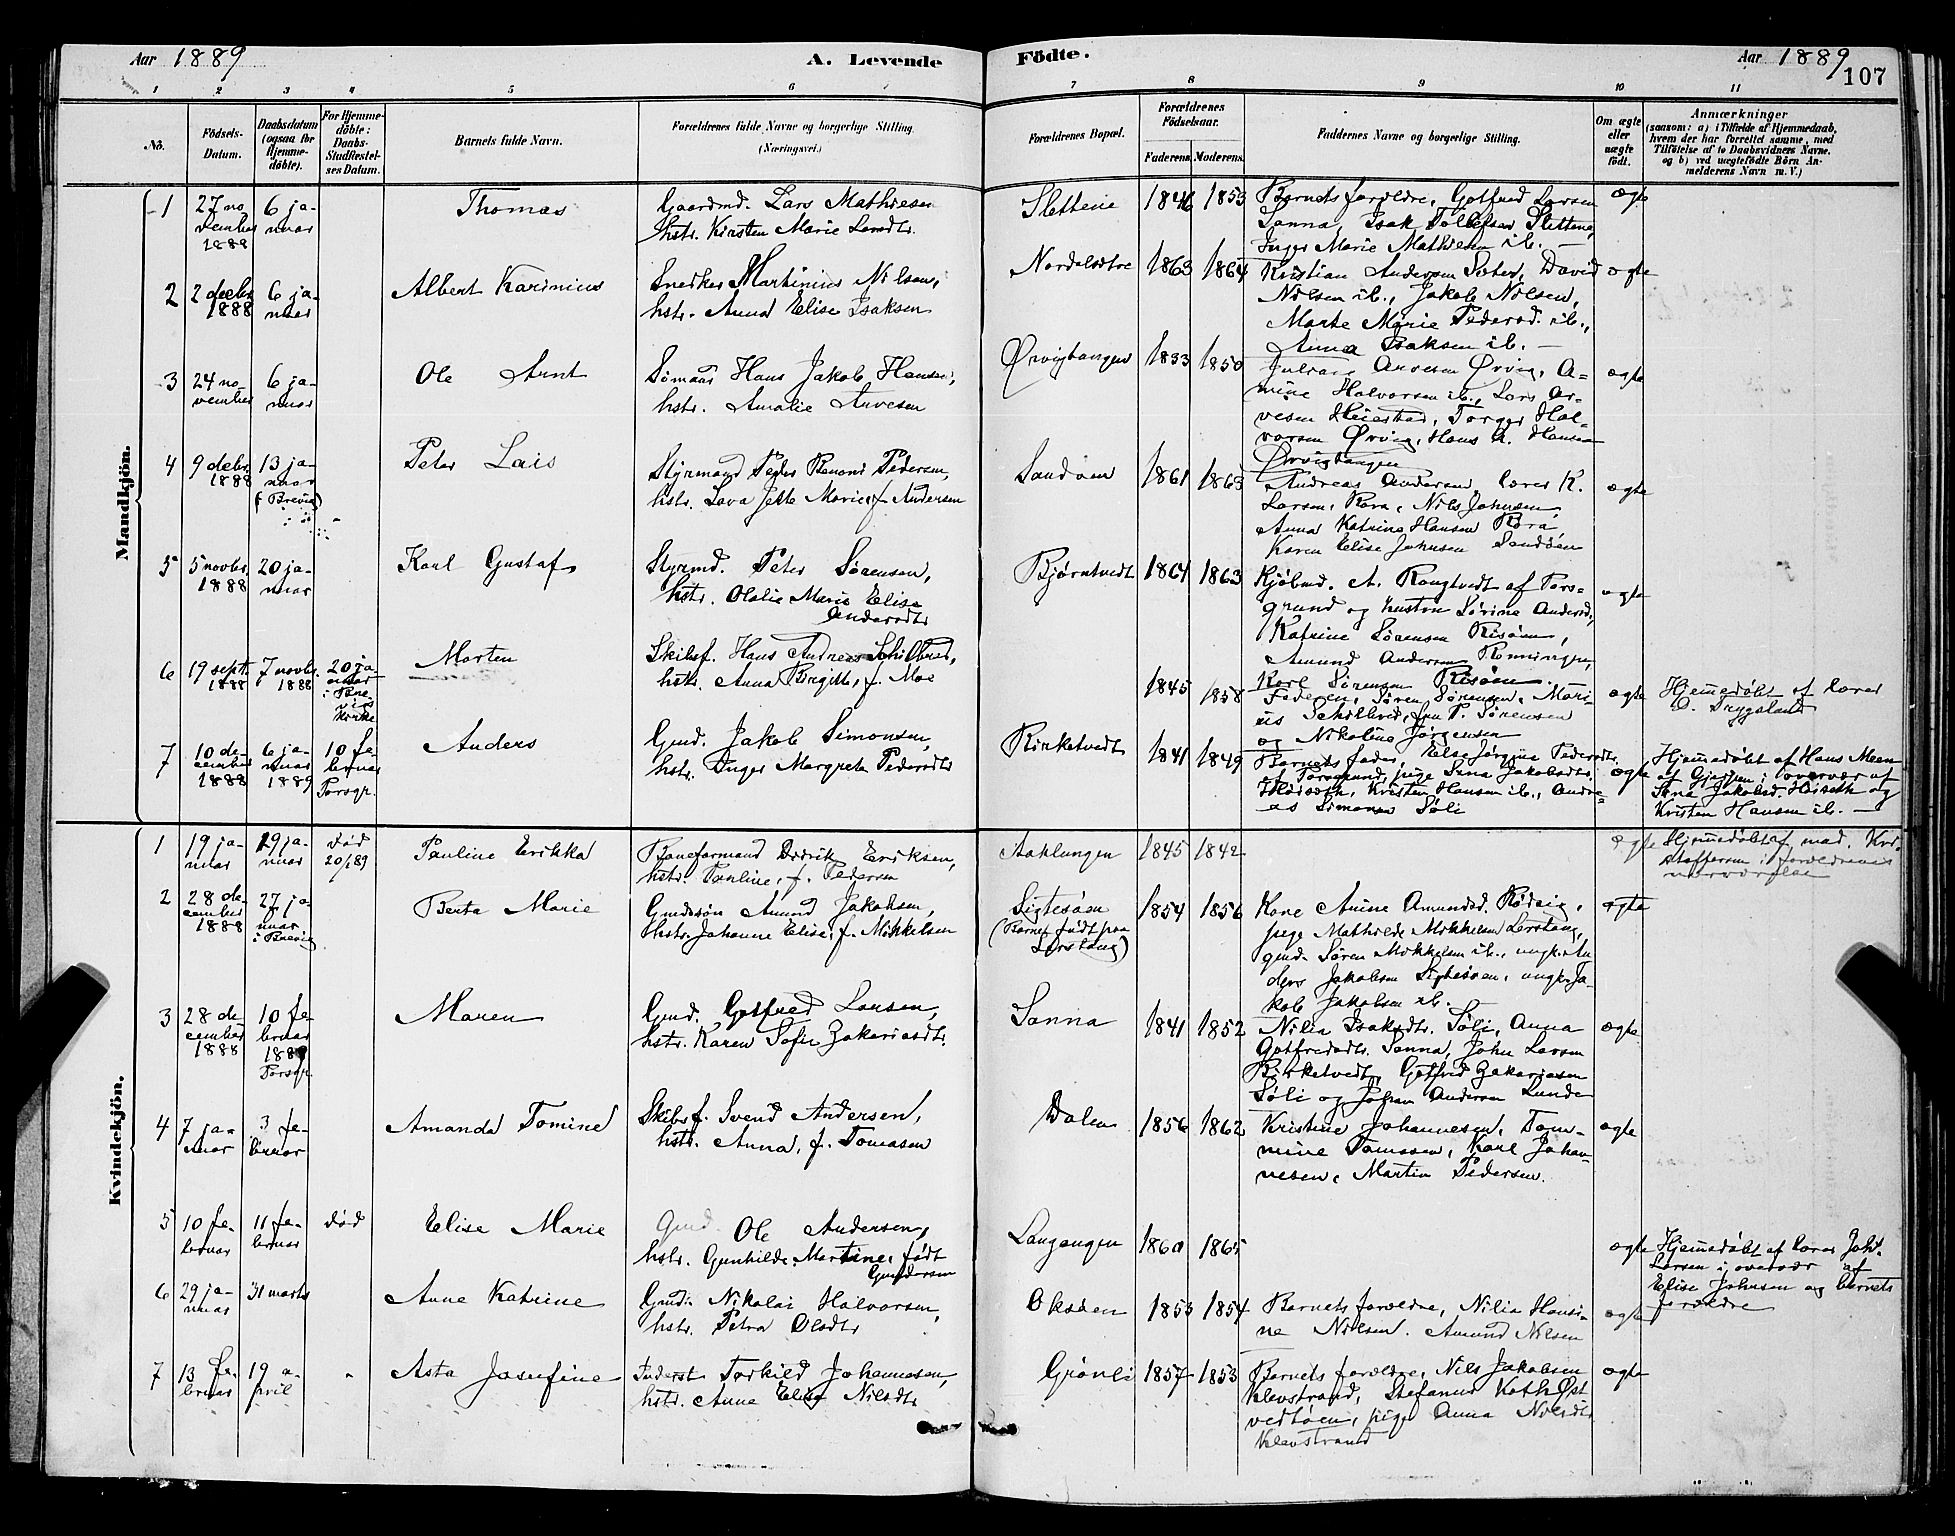 Aar 1889
A. Levende
Födte.
Aar 1889
107
1 2 3 4 5 6 7 8 9 10 11
No.
Födsels-
Datum.
Daabsdatum
(ogsaa for
Hjemme-
döbte).
For Hjemme-
döbte:
Daabs-
Stadfæstel-
ses Datum.
Barnets fulde Navn.
Forældrenes fulde Navne og borgerlige Stilling.
(Næringsvei.)
Forældrenes Bopæl.
Forældrenes
Födselsaar.
Faderens Moderens
Faddernes Navne og borgerlige Stilling.
Om ægte
eller
uægte
födt.
Anmærkninger
(saasom: a) i Tilfælde af Hjemmedaab,
hvem der har forrettet samme, med
Tilföielse af to Daabsvidners Navne,
og b) ved uægtefödte Börn An-
melderens Navn m. V.)
Mandkjön.
1
27 no-
vember
1888
6 ja-
nuar
Thomas
Gaardmd. Lars Mathiesen
hstr. Kirsten Marie Larsdtr.
Slettene
1846 1853
Barnets forældre, Gotfred Larsen
Sanna, Isak Tollefsen Slettene,
Inger Marie Mathiesen ib. —
ægte
2
2 decbr.
1888
6 ja-
nuar
Albert Karinius
Snedker Martinius Nilsen,
hstr. Anna Elise Isaksen
1863 1864
Kristian Andersen Sæter, David
Nilsen ib., Jakob Nilsen,
Marte Marie Pedersd. ib.,
Anna Isaksen ib. —
ægte
3
24 no-
vember
6 ja-
nuar
Ole Arnt
Sømand Hans Jakob Hansen,
hstr. Amalie Arvesen
Ørvigtangen
1833 1850
Arvesen Ørvig, A-
mine Halvorsen ib., Lars Ar-
vesen Heiestad, Torger Hal-
vorsen Ørvig, Hans A. Hansen
Ørvigtangen
ægte
4
9 debr.
1888
13 ja-
nuar
(Brevig)
Peter Lais
Styrmand Peder Pedersen,
hstr. Lava Jette Marie f. Andersen
Sandøen
1861 1863
Andreas Andersen, lærer K.
Larsen, Røra, Nils Johnsen,
Anna Katrine Hansen Røra
Karen Elise Johnsen Sandøen
ægte
5
5 novbr.
1888
20 ja-
nuar
Karl Gustaf
Styrmd. Peter Sørensen,
hstr. Olalie Marie Elise
Andersdtr.
Bjørntvedt
1864 1863
Kjøbmd. A. Rougtvedt af Pors-
grund og hustru Sørine Andersd.,
Katrine Sørensen Risøen,
Amund Andersen Rønningen,
Karl Sørensen Risøen.
ægte
6
19 septr.
1888
7 novbr.
1888
20 ja-
nuar
kirke
Morten
Skibsf. Hans Andreas Schilbred,
hstr. Anna Birgitte, f. Moe
1845 1858
Faderen, Søren Sørensen, Mari-
us Schilbred, P. Sørensen
og Nikoline Jørgensen
ægte
Hjemedøbt af lærer
O. Trygsland
7
10 de-
cember
1888
6 ja-
nuar
1889
10 fe-
bruar
Porsgr.
Anders
Gmd. Jakob Simonsen,
hstr. Inger Margrete Pedersdtr.
Kirketvedt
1841 1849
Barnets fader, Else Jørgine Pedersdtr.
af Porsgrund, pige Sina Jakobsdtr.
Kristen Hansen ib., Andre-
as Simonsen Søli
ægte
Hjemedøbt af Hans Meen
af Gjerpen i overvær af
Sina Jakobsd. og
Kristen Hansen ib. —
Kvindekjön.
1
19 ja-
nuar
19 ja-
nuar
død
20/1 89
Pauline Erikka
Baneformand Didrik Eriksen,
hstr. Pauline, f. Pedersen
Aaklungen
1845 1842
ægte
Hjemedøbt af mad. Kri-
stoffersen i forældrenes
nærværelse
2
28 de-
cember
1888
27 ja-
nuar
i Brevig
Berta Marie
Gmdssøn Amund Jakobsen,
hstr. Johanne Elise, f. Mikkelsen
Sigtesøen
(Barnet født paa
Lerstang)
1854 1856
Kone Anine Amundsd. Rødsig,
pige Mathilde Mikkelsen Lerstang,
gmd. Søren Mikkelsen ib., ungk. An-
ders Jakobsen Sigtesøen, ungk. Ja-
kob Jakobsen ib.
ægte
3
28 de-
cember
1888
10 fe-
bruar
1889
Porsgr.
Maren
Gmd. Gotfred Larsen,
hstr. Karen Sofie Zakariasdtr.
Sanna
1841 1852
Nilia Isaksdtr. Søli, Anna
Gotfredsdtr. Sanna, John Larsen
Kirketvedt, Gotfred Zakariasen
Søli og Johan Andersen Lunde
ægte
4
7 ja-
nuar
3 fe-
bruar
Amanda Tomine
Skibsf. Svend Andersen,
hstr. Anna, f. Tomasen
Dalen
1856 1862
Kristine Johannesen, Tom-
mine Tomasen, Karl Johan-
nesen, Martin Pedersen.
ægte
5
10 fe-
bruar
11 fe-
bruar
død
Elise Marie
Gmd. Ole Andersen,
hstr. Gunhilde Martine, født
Gundersen
Langangen
1860 1865
ægte
Hjemedøbt af lærer Joh.
Larsen i overvær af
Elise Johnsen og barnets
forældre
6
29 ja-
nuar
31 marts
Anne Katrine
Gmd. Nikolai Halvorsen,
hstr. Petra Olsdtr.
Oksøen
1853 1854
Barnets forældre, Nilia Hansi-
ne Nilsen. Amund Nilsen
ægte
7
13 fe-
bruar
19 a-
pril
Asta Josefine
Inderst Torkild Johannesen,
hstr. Anne Elise Nilsdtr.
Grønli
1857 1853
Barnets forældre, Nils Jakobsen
Klevstrand, Stefanus Øst
vedtøen, pige Anna Nilsdtr.
Klevstrand
ægte